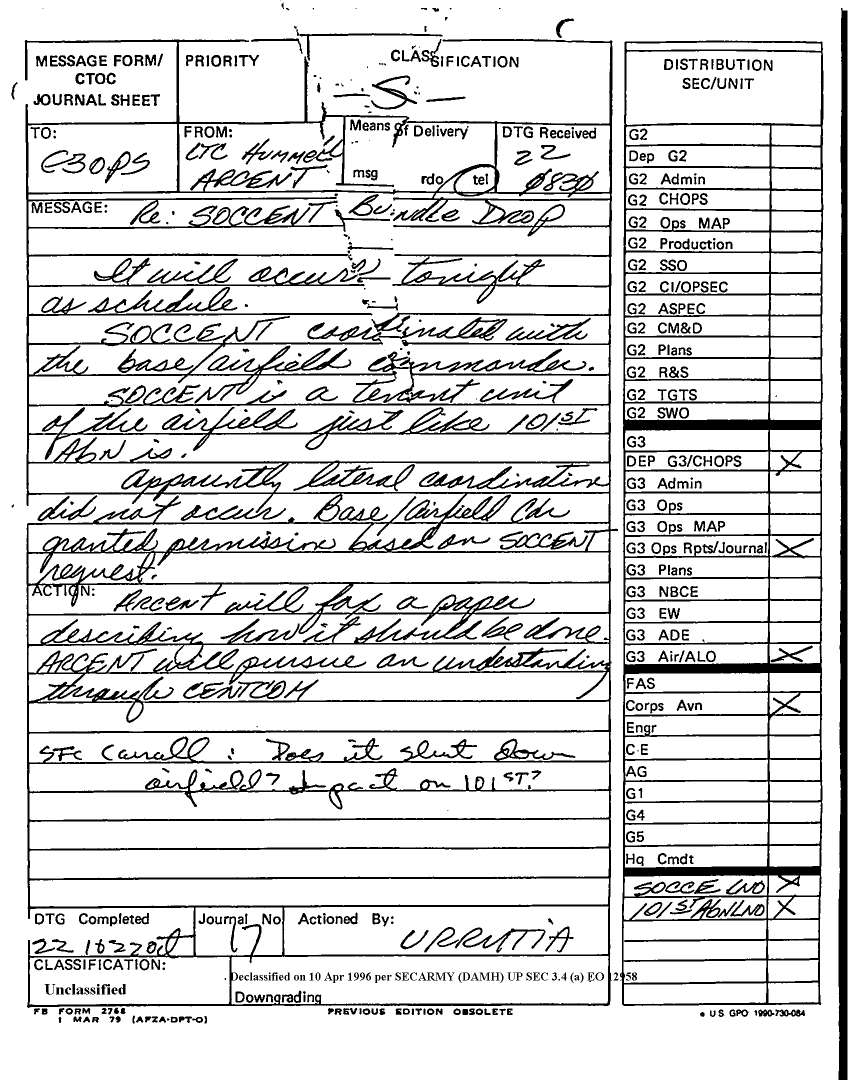 MESSAGE FORM/
CTOC
JOURNAL SHEET
PRIORITY
CLASSIFICATION
S
TO:
G3OPS
FROM:
LTC HUMMELL
ARCENT
Means of Delivery
msg rdo tel
DTG Received
22
0830
MESSAGE: Re: SOCCENT Bundle Drop
It will occur tonight
as schedule.
SOCCENT coordinated with
the base/airfield commander.
SOCCENT is a tenant unit
of the airfield just like 101ST
Abn is.
Apparently lateral coordination
did not occur. Base/Airfield Cdr
granted permission based on SOCCENT
request.
ACTION: ARCENT will fax a paper
describing how it should be done.
ARCENT will pursue an understanding
through CENTCOM
SFC Carrall : Does it shut down
airfield? Impact on 101ST?
DTG Completed
22
Journal No
17
Actioned By:
URRUTIA
CLASSIFICATION:
Unclassified
Declassified on 10 Apr 1996 per SECARMY (DAMH) UP SEC 3.4 (a) EO 12958
Downgrading
FB FORM 2768
1 MAR 79 (AFZA-DPT-O)
PREVIOUS EDITION OBSOLETE
DISTRIBUTION
SEC/UNIT
G2
Dep G2
G2 Admin
G2 CHOPS
G2 Ops MAP
G2 Production
G2 SSO
G2 CI/OPSEC
G2 ASPEC
G2 CM&D
G2 Plans
G2 R&S
G2 TGTS
G2 SWO
G3
DEP G3/CHOPS X
G3 Admin
G3 Ops
G3 Ops MAP
G3 Ops Rpts/Journal X
G3 Plans
G3 NBCE
G3 EW
G3 ADE
G3 Air/ALO X
FAS
Corps Avn X
Engr
C-E
AG
G1
G4
G5
Hq Cmdt
SOCCE LNO X
101ST Abn LNO X
US GPO 1990-730-084